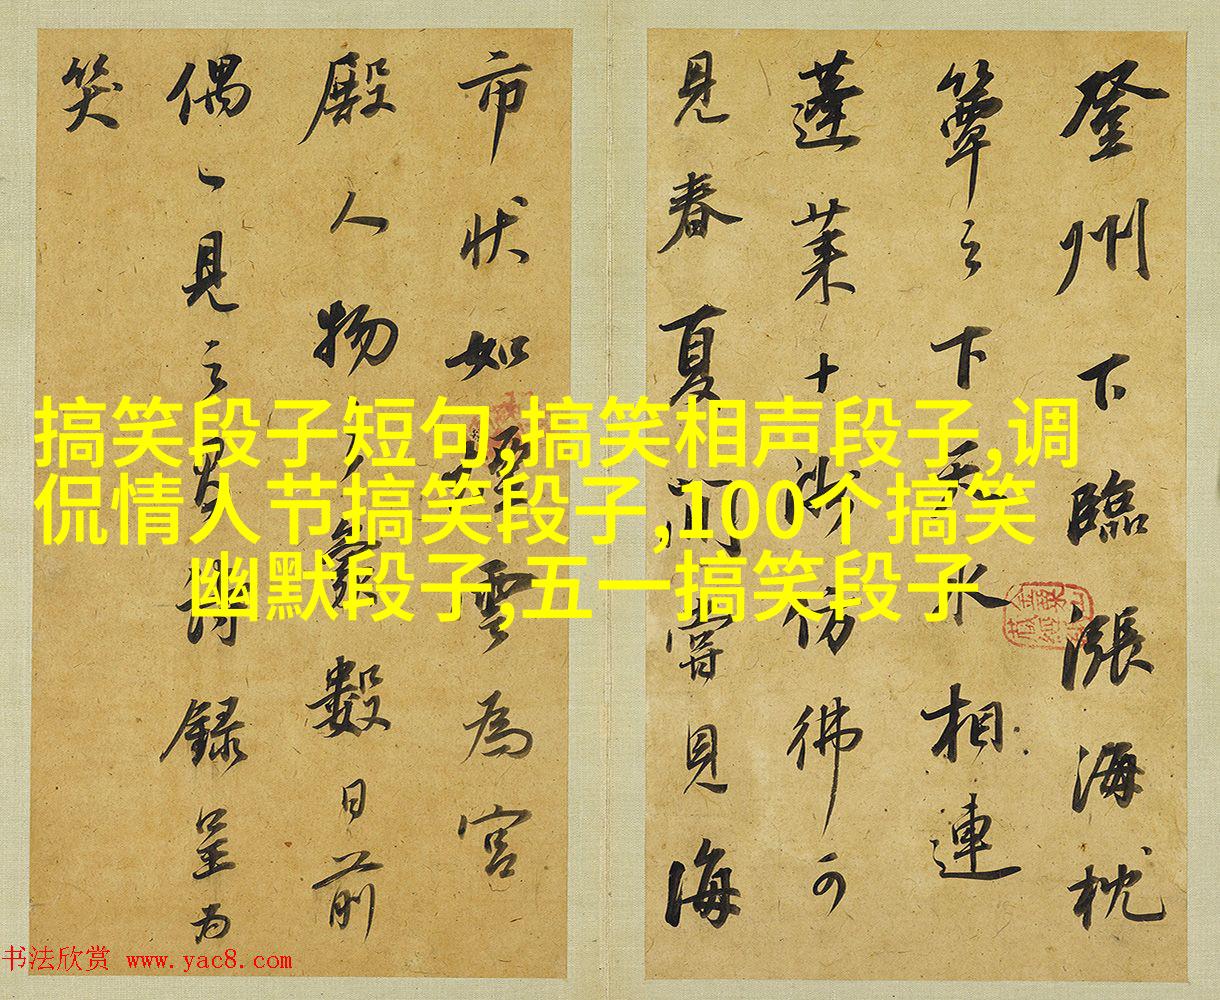 登州下臨漲海枕
簟之下天水相連
蓬莱十洲仿彿可
見春夏間嘗見海
市狀如煙雲為宮
殿人物之象數日前
偶一見之詩錄呈為
笑
搞笑段子短句,搞笑相声段子,调
侃情人节搞笑段子,100个搞笑
幽默段子,五一搞笑段子
书法欣赏 www.yac8.com